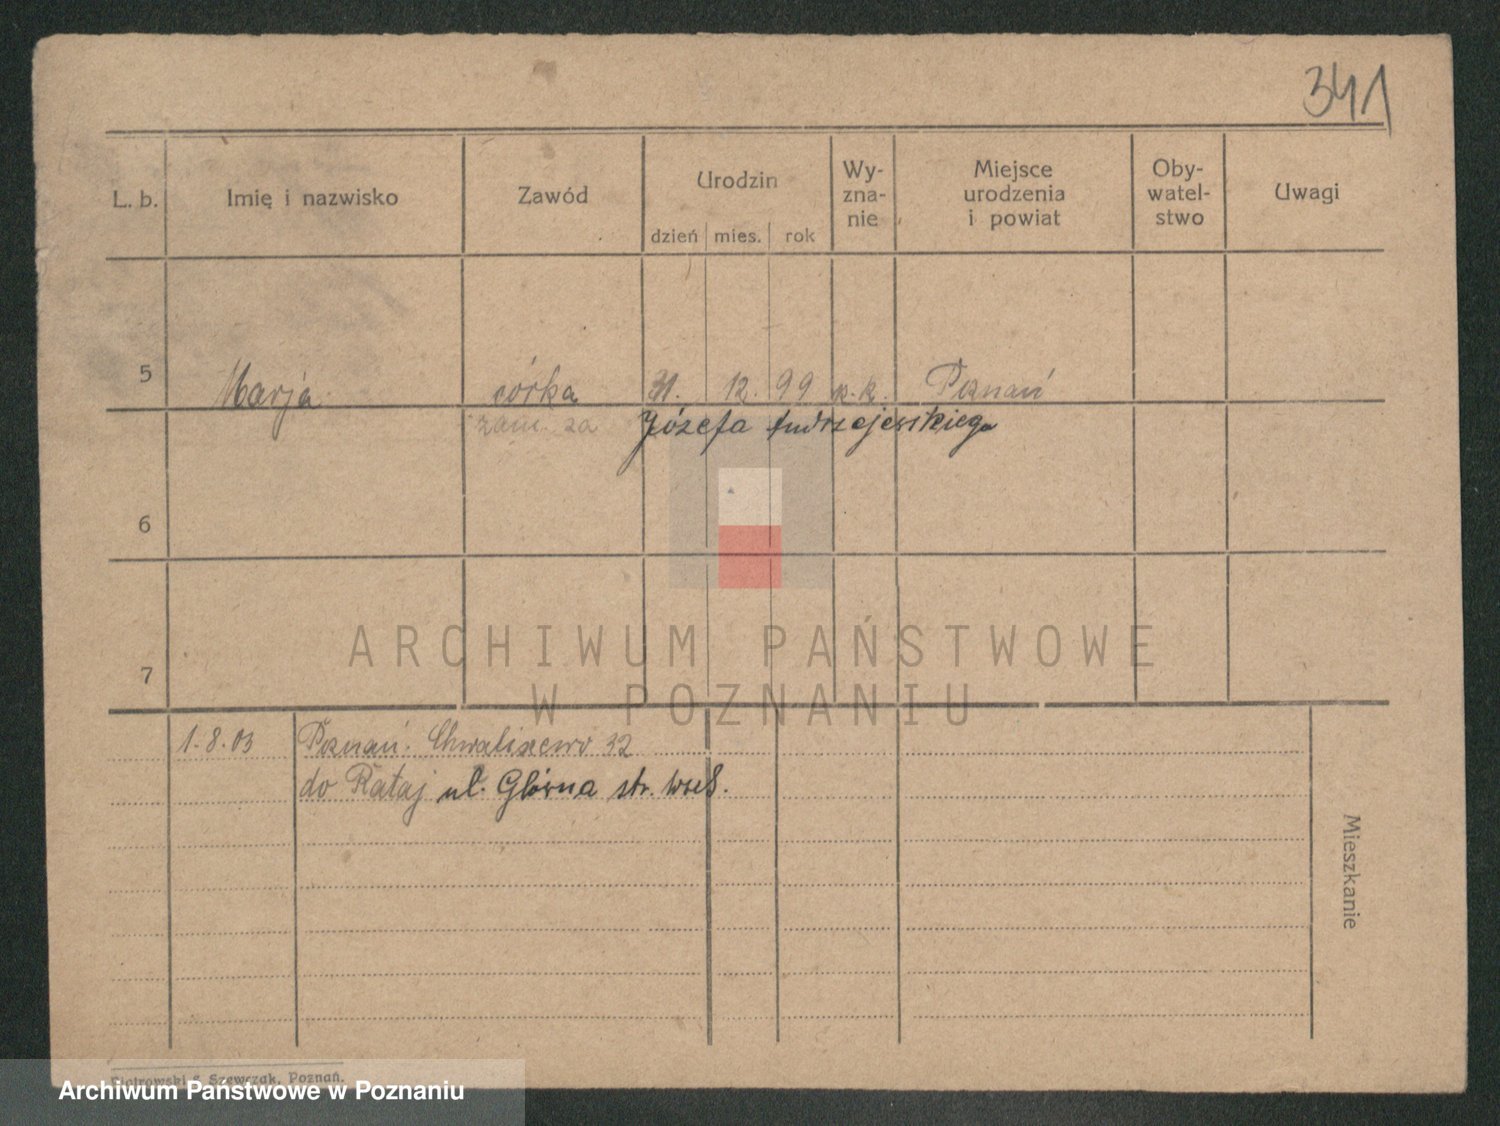 341
L. b. Imię i nazwisko Zawód Urodzin Wy- zna- nie Miejsce urodzenia i powiat Oby- watel- stwo Uwagi
dzień mies. rok
5 Marja córka 31. 12. 99 p.k. Poznań
zam. za Józefa Andrzejewskiego
6
7
ARCHIWUM PAŃSTWOWE
W POZNANIU
1.8.03 Poznań: Chwaliszewo 32
do Rataj ul. Główna str.
Mieszkanie
Piotrowski & Szewczak, Poznań.
Archiwum Państwowe w Poznaniu